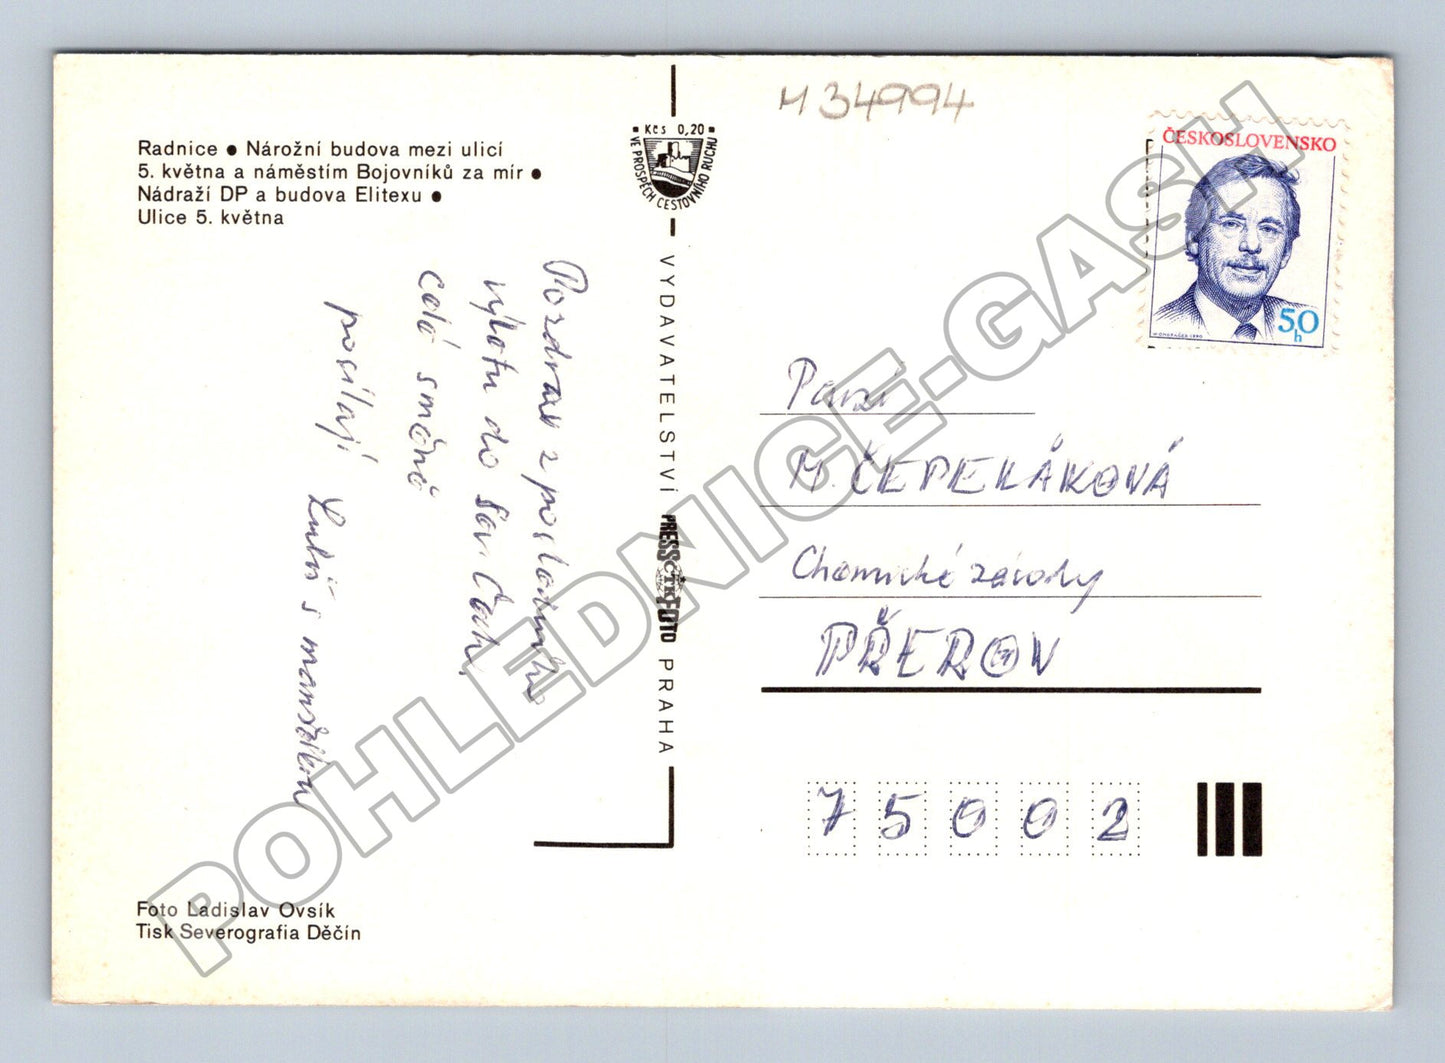 M 34994
Radnice ● Nárožní budova mezi ulicí
5. května a náměstím Bojovníků za mír ●
Nádraží DP a budova Elitexu ●
Ulice 5. května
Kčs 0,20
VE PROSPĚCH CESTOVNÍHO RUCHU
ČESKOSLOVENSKO
50
h
Pozdrav z posledního
výletu do Sev. Čech,
celé směně
posílají
Luboš s manželkou
VYDAVATELSTVÍ PRESSFOTO PRAHA
ČTK
Paní
M. ČEPELÁKOVÁ
Chemické závody
PŘEROV
75002
Foto Ladislav Ovsík
Tisk Severografia Děčín
POHLEDNICE-GASH